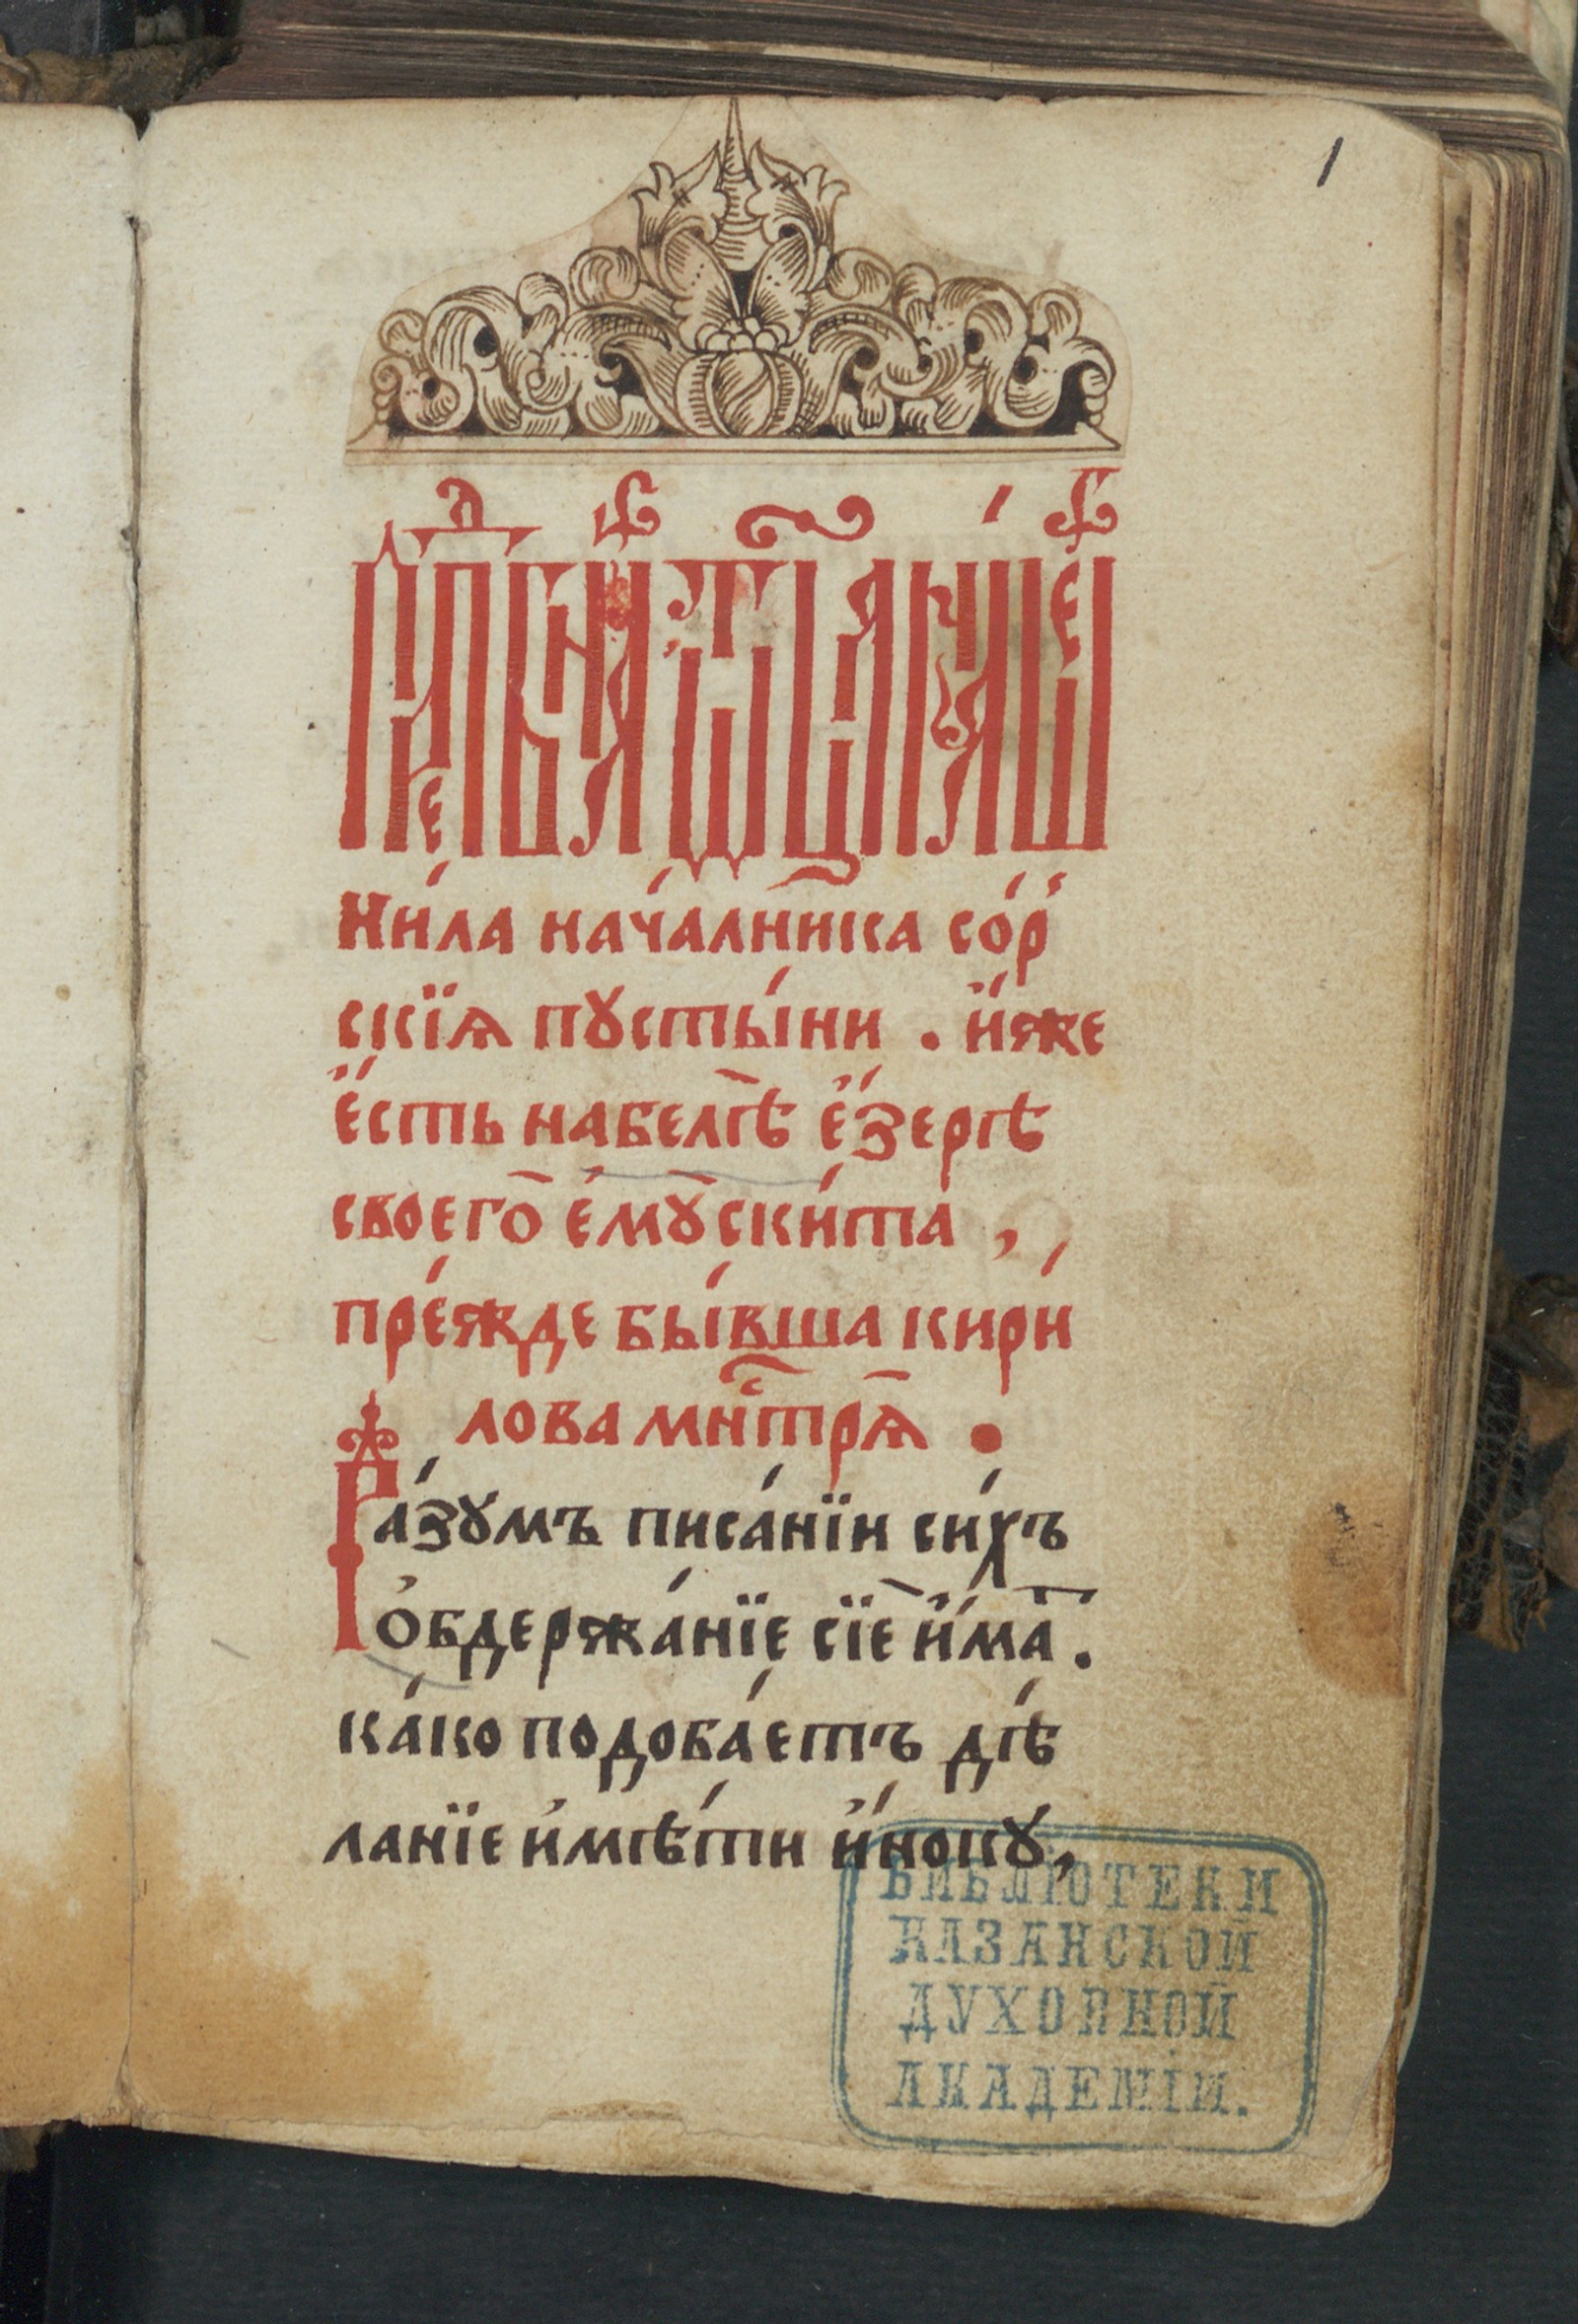 1
Ни́ла нача́лника со́р
скїѧ пꙋсты́ни . и҆́же
є҆́сть набелѣ є҆́зерѣ
своего є҆мꙋ̀ ски́та ,
пре́жде бы́вша кири́
лова мнⷭ҇трѧ̀ .
Ра́зꙋмъ писа́нїи си́хъ
ѻ҆бдержа́нїе сїѐ и҆́мà .
ка́ко подоба́етъ дѣ́
ланїе и҆мѣ́ти и҆́нокꙋ ,
БИБЛІОТЕКИ
КАЗАНСКОЙ
ДУХОВНОЙ
АКАДЕМІИ.